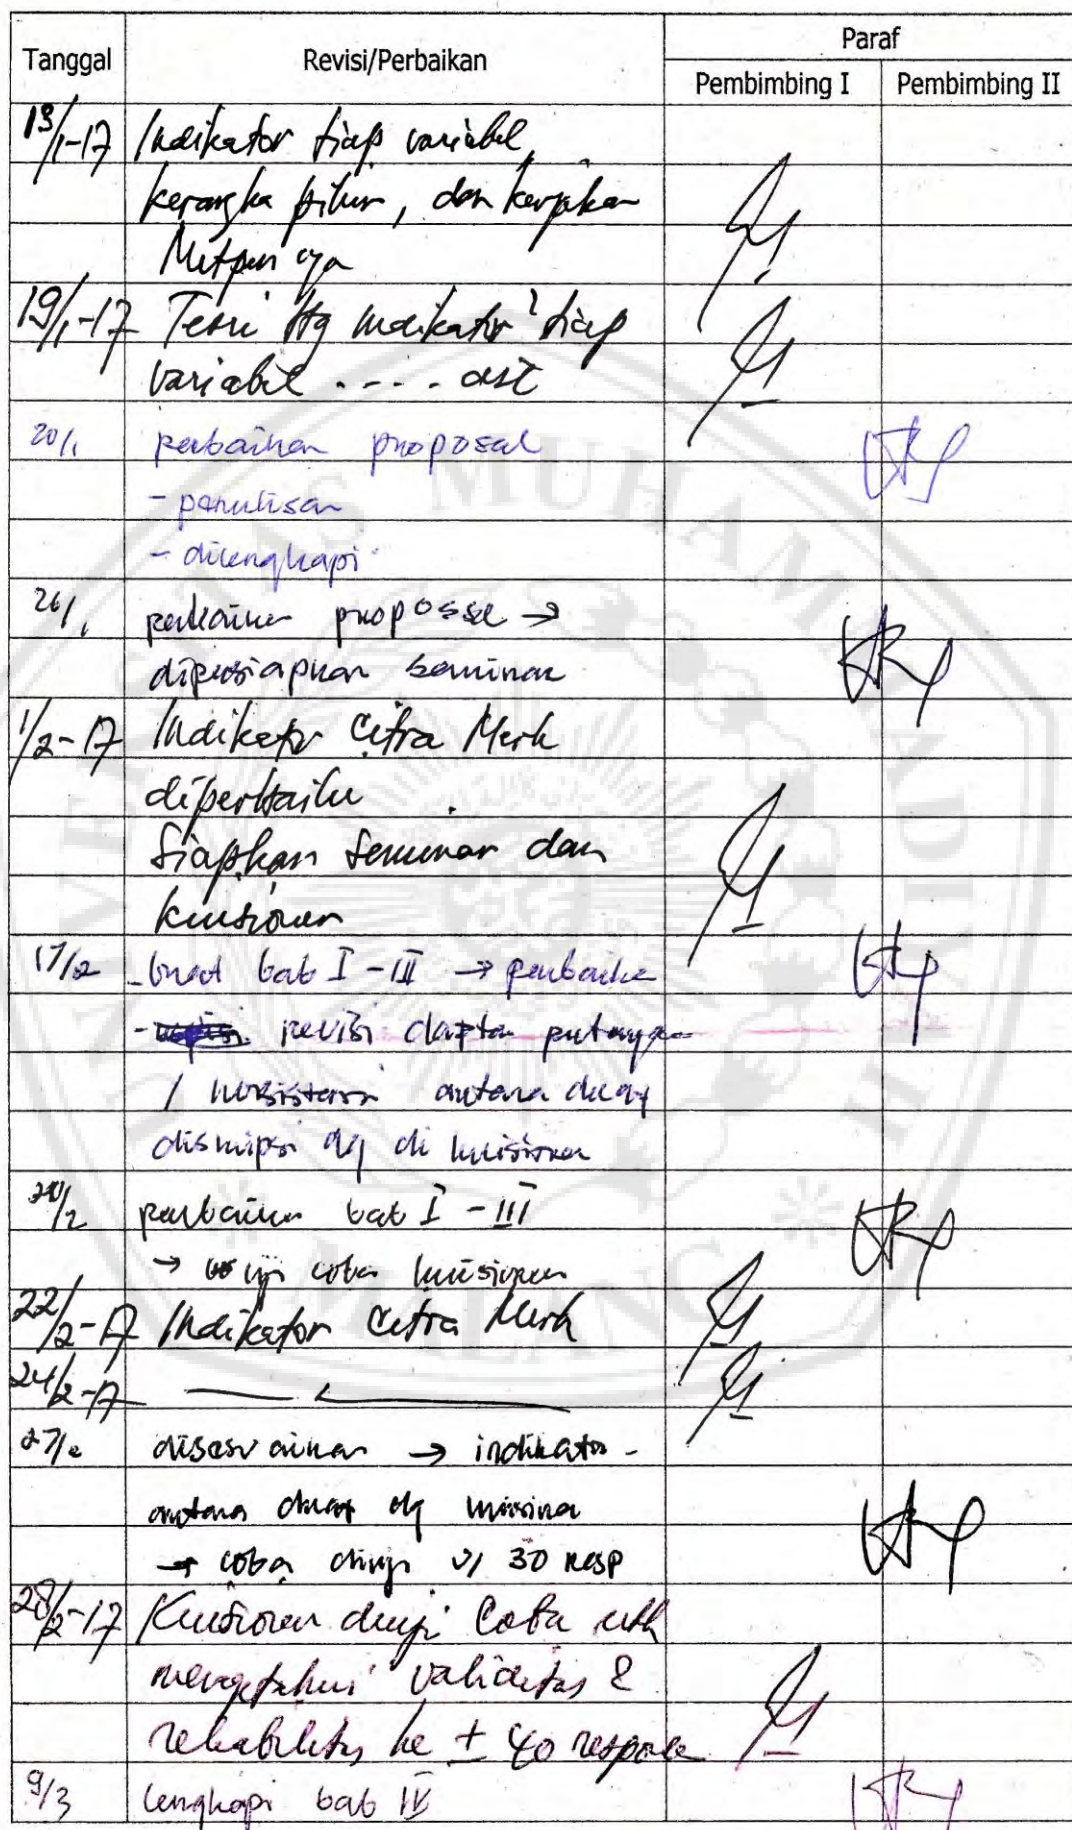 Tanggal Revisi/Perbaikan Paraf
Pembimbing I Pembimbing II
13/1-17 Indikator tiap variabel,
kerangka pikir, dan kerjakan
Metpen nya
19/1-17 Teori ttg indikator² tiap
variabel .... dst
20/1 perbaikan proposal
- penulisan
- dilengkapi
26/1 perbaikan proposal →
dipersiapkan seminar
1/2-17 Indikator Citra Merk
diperbaiki
Siapkan seminar dan
kuisioner
17/2 - buat bab I - III → perbaikan
- revisi daftar pertanyaan
/ konsistensi antara
diskripsi dg di kuisioner
20/2 perbaikan bab I - III
→ uji coba kuisioner
22/2-17 Indikator Citra Merk
24/2-17
27/2 disesuaikan → indikator -
antara dg kuisioner
→ coba diuji 30 resp
28/2-17 Kuisioner diuji coba utk
mengetahui validitas &
reliabilitas ke ± 40 responden
9/3 lengkapi bab IV
UNIVERSITAS MUHAMMADIYAH
MALANG